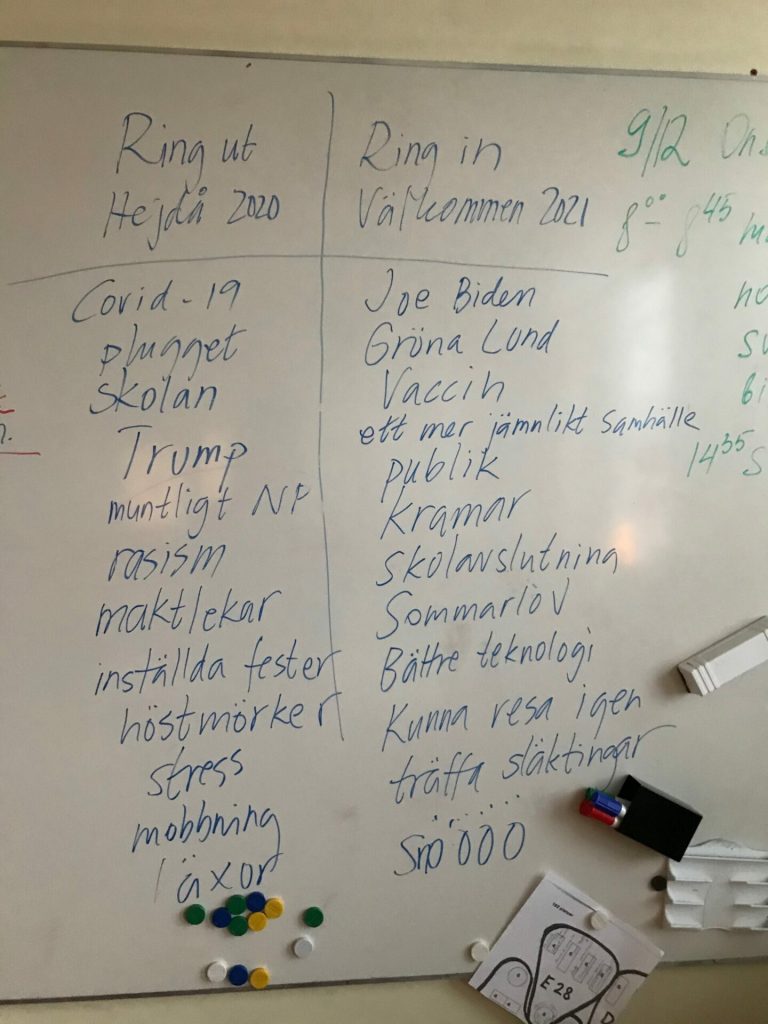 Ring ut
Hejdå 2020
Covid-19
plugget
skolan
Trump
muntligt NP
rasism
maktlekar
inställda fester
höstmörker
stress
mobbning
läxor
Ring in
Välkommen 2021
Joe Biden
Gröna Lund
Vaccin
ett mer jämnlikt samhälle
publik
kramar
skolavslutning
Sommarlov
Bättre teknologi
Kunna resa igen
träffa släktingar
Snöööö
9/12 Ons
8⁰⁰ - 8⁴⁵
14³⁵ S
E28
D